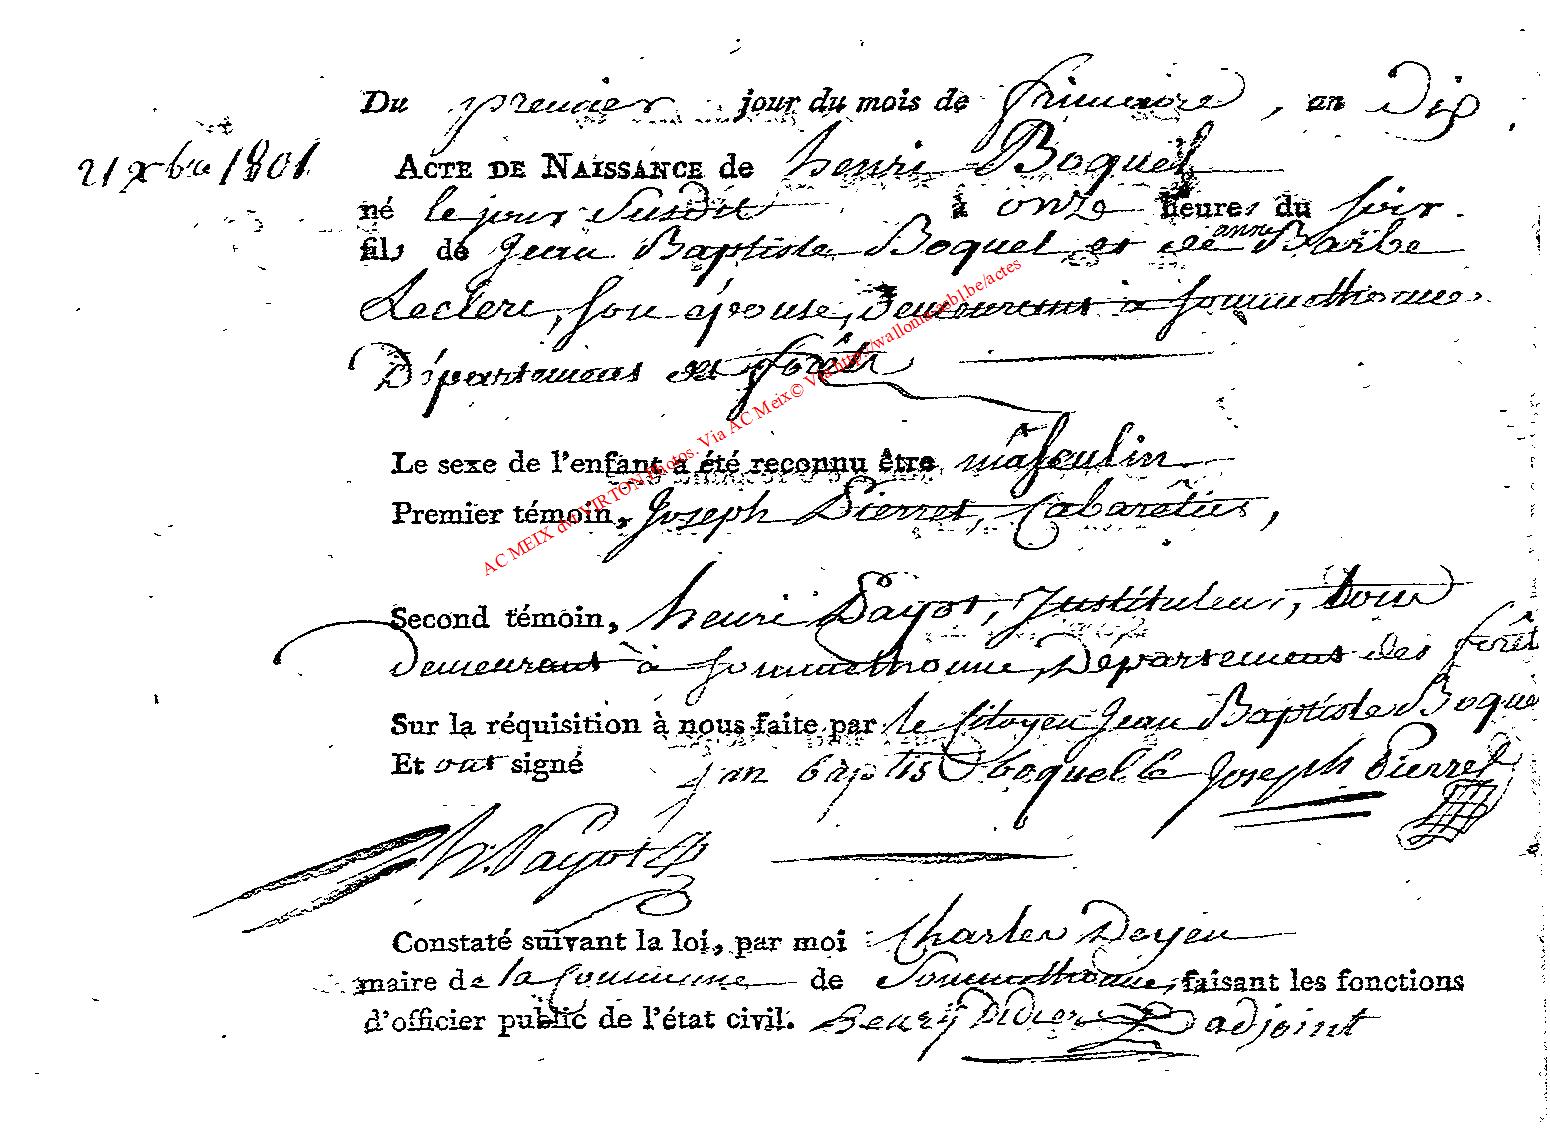 Du premier jour du mois de frimaire, an Dix
21 xbre 1801
ACTE DE NAISSANCE de henri Boquel
né le jour Susdit à onze heures du soir
fils de Jean Baptiste Boquel et de anne Barbe
Leclere, Son épouse, Demeurant à Sommethonne
Département des forêts
Le sexe de l'enfant a été reconnu être masculin
Premier témoin, Joseph Pierret, Cabaretier,
Second témoin, henri Payot, Instituteur, tous
Demeurant à Sommethonne, Département des forêt
Sur la réquisition à nous faite par le Citoyen Jean Baptiste Boque
Et ont signé jan baptis boquel Joseph Pierret
h. Payot
Constaté suivant la loi, par moi Charles Deyeu
maire de la Commune de Sommethonne, faisant les fonctions
d'officier public de l'état civil. henry Didier adjoint
AC MEIX dvt VIRTON Photos. Via AC Meix© Via http://wallonia.ab1.be/actes